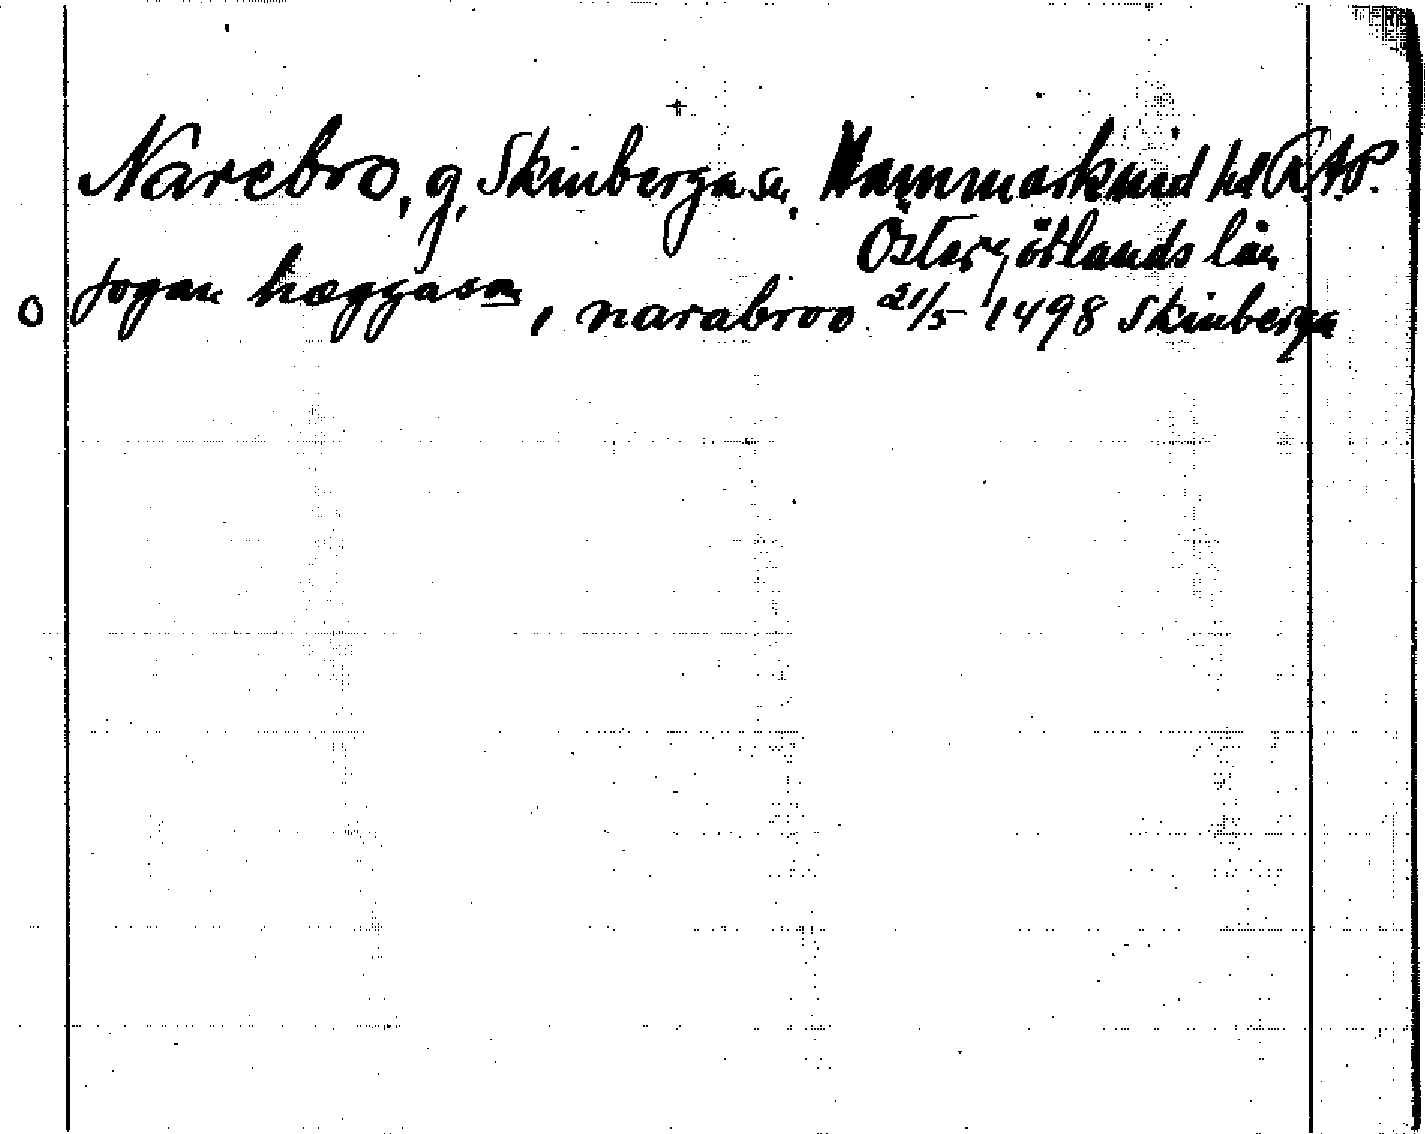 Narebro, g, Skinberga sn, Hammarkind hd RAP.
Östergötlands län
o Jogan hæggason, i narabroo 21/5 1498 Skinberga